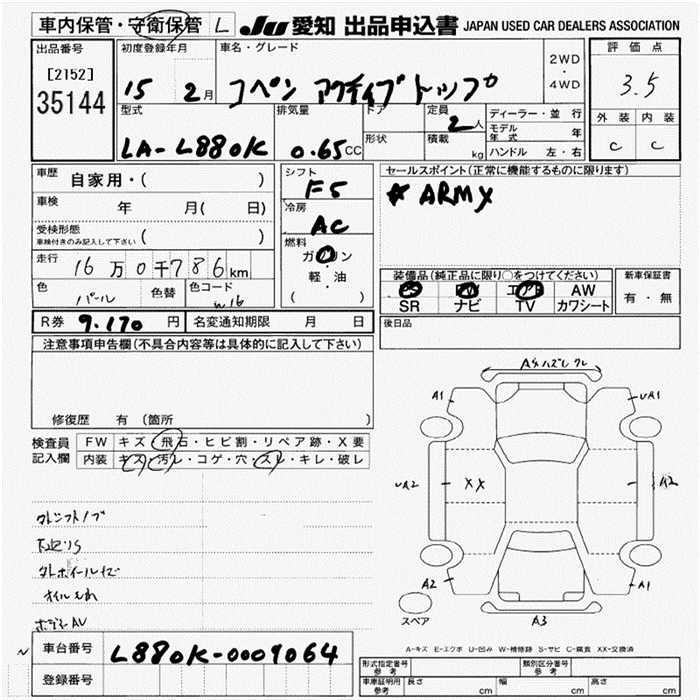 車内保管・守衛保管 L JU 愛知 出品申込書 JAPAN USED CAR DEALERS ASSOCIATION
出品番号 初度登録年月 車名・グレード 2WD・4WD 評価点
[2152]
35144 15 2月 コペン アクティブトップ 3.5
型式 排気量 ドア 定員 2人 ディーラー・並行 外装 内装
LA-L880K 0.65CC 形状 積載 kg モデル年式 年 C C
ハンドル 左・右
車歴 自家用・( ) シフト F5 セールスポイント(正常に機能するものに限ります)
車検 年 月( 日) 冷房 AC ★ ARMY
受検形態 ( )
車検付きのみ記入して下さい
燃料 ガソリン
走行 16万0千786km 軽・油
色 パール 色替 色コード W16 ( )
装備品(純正品に限り○をつけてください) 新車保証書
PS PW エアB AW 有・無
SR ナビ TV カワシート
R券 9.170円 名変通知期限 月 日 後日品
注意事項申告欄(不具合内容等は具体的に記入して下さい)
修復歴 有 (箇所 )
検査員 FW キズ・飛石・ヒビ割・リペア跡・X要
記入欄 内装 キズ・汚レ・コゲ・穴・スレ・キレ・破レ
オイルもれ
ボデーAU
A1 UA1
UA2 XX A2
A2 A1
スペア A3
A-キズ E-エクボ U-凹み W-補修跡 S-サビ C-腐食 XX-交換済
車台番号 L880K-0009064
登録番号
形式指定番号 参考 類別区分番号 参考
車庫証明用 参考 長さ cm 幅 cm 高さ cm